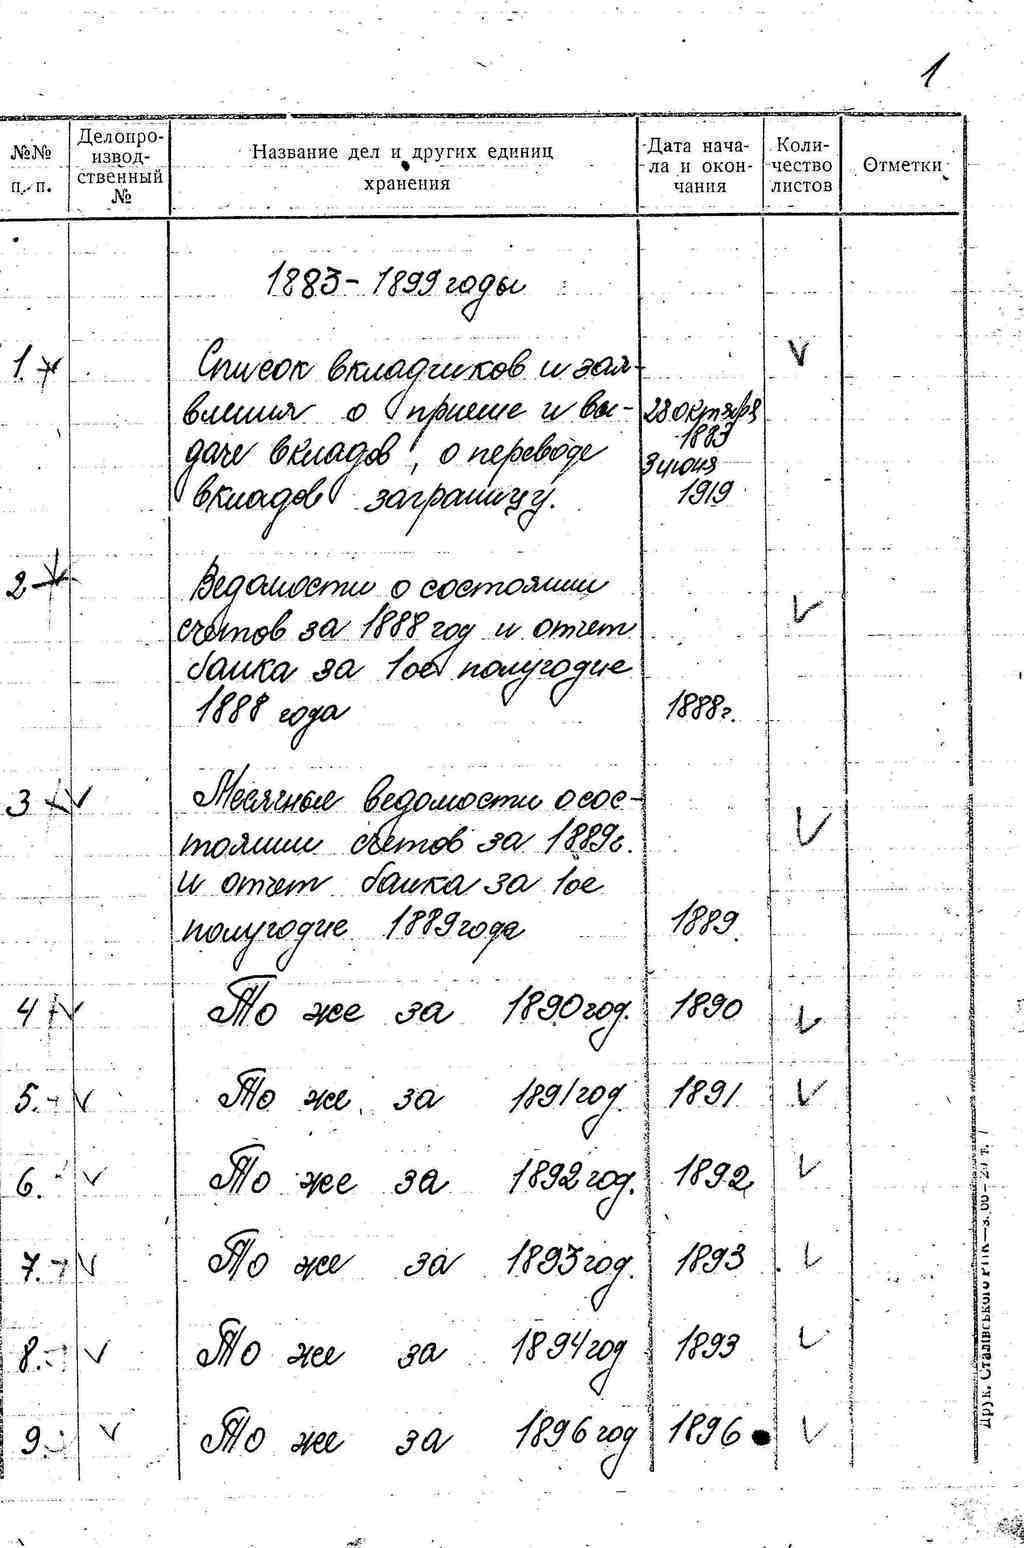 1
№№
п.-п.
Делопро-
извод-
ственный
№
Название дел и других единиц
хранения
Дата нача-
ла и окон-
чания
Коли-
чество
листов
Отметки
1883-1899 годы
1. Список вкладчиков и зая-
вления о приеме и вы- 28 октября
1883
даче вкладов, о переводе 3 июня
вкладов заграницу. 1919
2 Ведомости о состоянии
счетов за 1888 год и отчет
банка за 1ое полугодие
1888 года 1888г.
3 Месячные ведомости о сос-
тоянии счетов за 1889г.
и отчет банка за 1ое
полугодие 1889 года 1889.
4 То же за 1890 год. 1890
5. То же за 1891 год. 1891
6. То же за 1892 год. 1892
7. То же за 1893 год. 1893
8. То же за 1894 год 1893
9. То же за 1896 год 1896
Друк. Сталінського